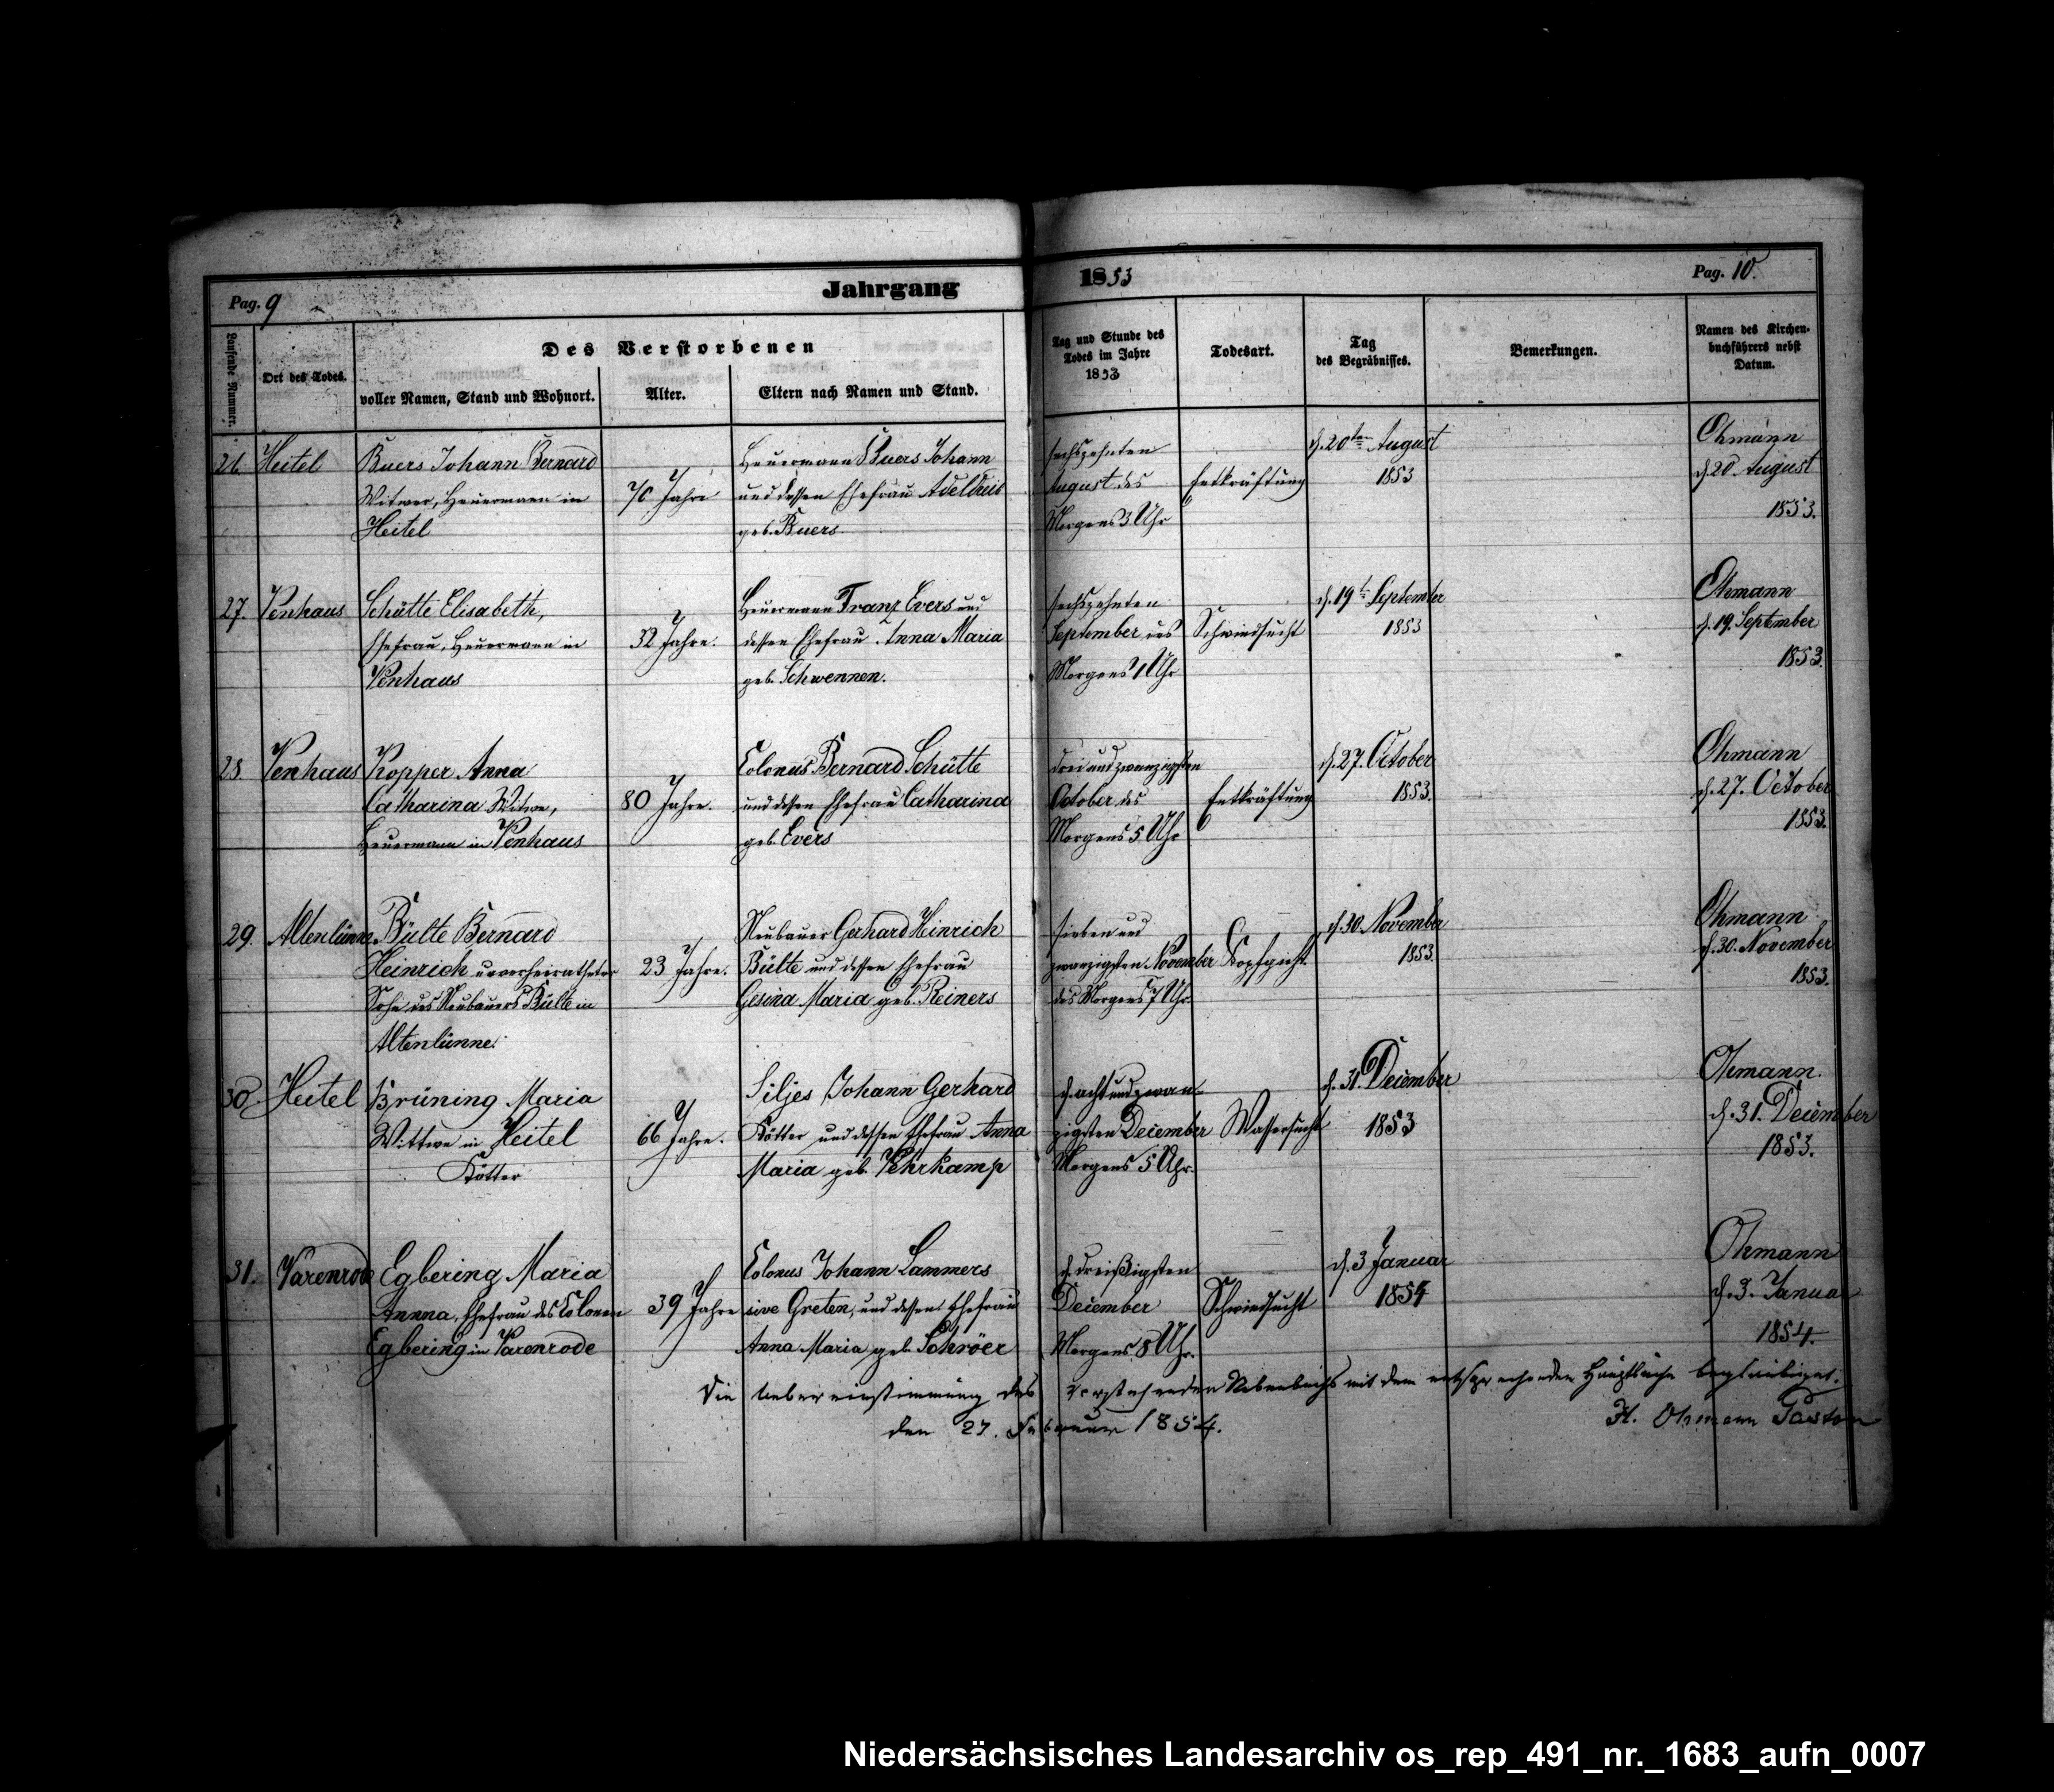 Pag. 9
Jahrgang
1853
Pag. 10.
Laufende Nummer.
Ort des Todes.
Des Verstorbenen
voller Namen, Stand und Wohnort.
Alter.
Eltern nach Namen und Stand.
Tag und Stunde des
Todes im Jahre
1853
Todesart.
Tag
des Begräbnisses.
Bemerkungen.
Namen des Kirchen-
buchführers nebst
Datum.
26. Heitel
Buers Johann Bernard
Witwer, Heuermann in
Heitel
70 Jahre
Heuermann Buers Johann
und dessen Ehefrau Adelheid
geb. Buers
sechszehnten
August des
Morgens 3 Uhr
Entkräftung
d. 20ten August
1853
Ohmann
d. 20. August
1853.
27. Venhaus
Schütte Elisabeth,
Ehefrau, Heuermann in
Venhaus
32 Jahre.
Heuermann Franz Evers und
dessen Ehefrau Anna Maria
geb. Schwennen.
sechszehnten
September des
Morgens 1 Uhr
Schwindsucht
d. 19t September
1853
Ohmann
d. 19. September
1853.
28. Venhaus
Kopper Anna
Catharina Witwe,
Heuermann in Venhaus
80 Jahre.
Colonus Bernard Schütte
und dessen Ehefrau Catharina
geb. Evers
drei und zwanzigsten
October des
Morgens 5 Uhr
Entkräftung
d. 27. October
1853.
Ohmann
d. 27. October
1853.
29. Altenlünne
Bülte Bernard
Heinrich unverheiratheter
Sohn des Neubauers Bülte in
Altenlünne.
23 Jahre.
Neubauer Gerhard Heinrich
Bülte und dessen Ehefrau
Gesina Maria geb. Reiners
sieben und
zwanzigsten November
des Morgens 7 Uhr.
Kopfgicht.
d. 30. November
1853.
Ohmann
d. 30. November
1853.
30. Heitel
Brüning Maria
Wittwe in Heitel
Kötter
66 Jahre.
Siljes Johann Gerhard
Kötter und dessen Ehefrau Anna
Maria geb. Vehrkamp
d. acht und zwan-
zigsten December
Morgens 5 Uhr.
Wassersucht
d. 31. December
1853
Ohmann.
d. 31. December
1853.
31. Varenrode
Egbering Maria
Annna, Ehefrau des Colonen
Egbering in Varenrode
39 Jahre
Colonus Johann Lammers
sive Greten, und dessen Ehefrau
Anna Maria geb. Schröer
d. dreißigsten
December
Morgens 8 Uhr.
Schwindsucht
d. 3 Januar
1854
Ohmann
d. 3. Janua
1854.
Die Uebereinstimmung des vorstehenden Nebenbuchs mit dem entsprechenden Hauptbuche beglaubiget.
den 27. Februar 1854.
H. Ohmann Pastor
Niedersächsisches Landesarchiv os_rep_491_nr._1683_aufn_0007